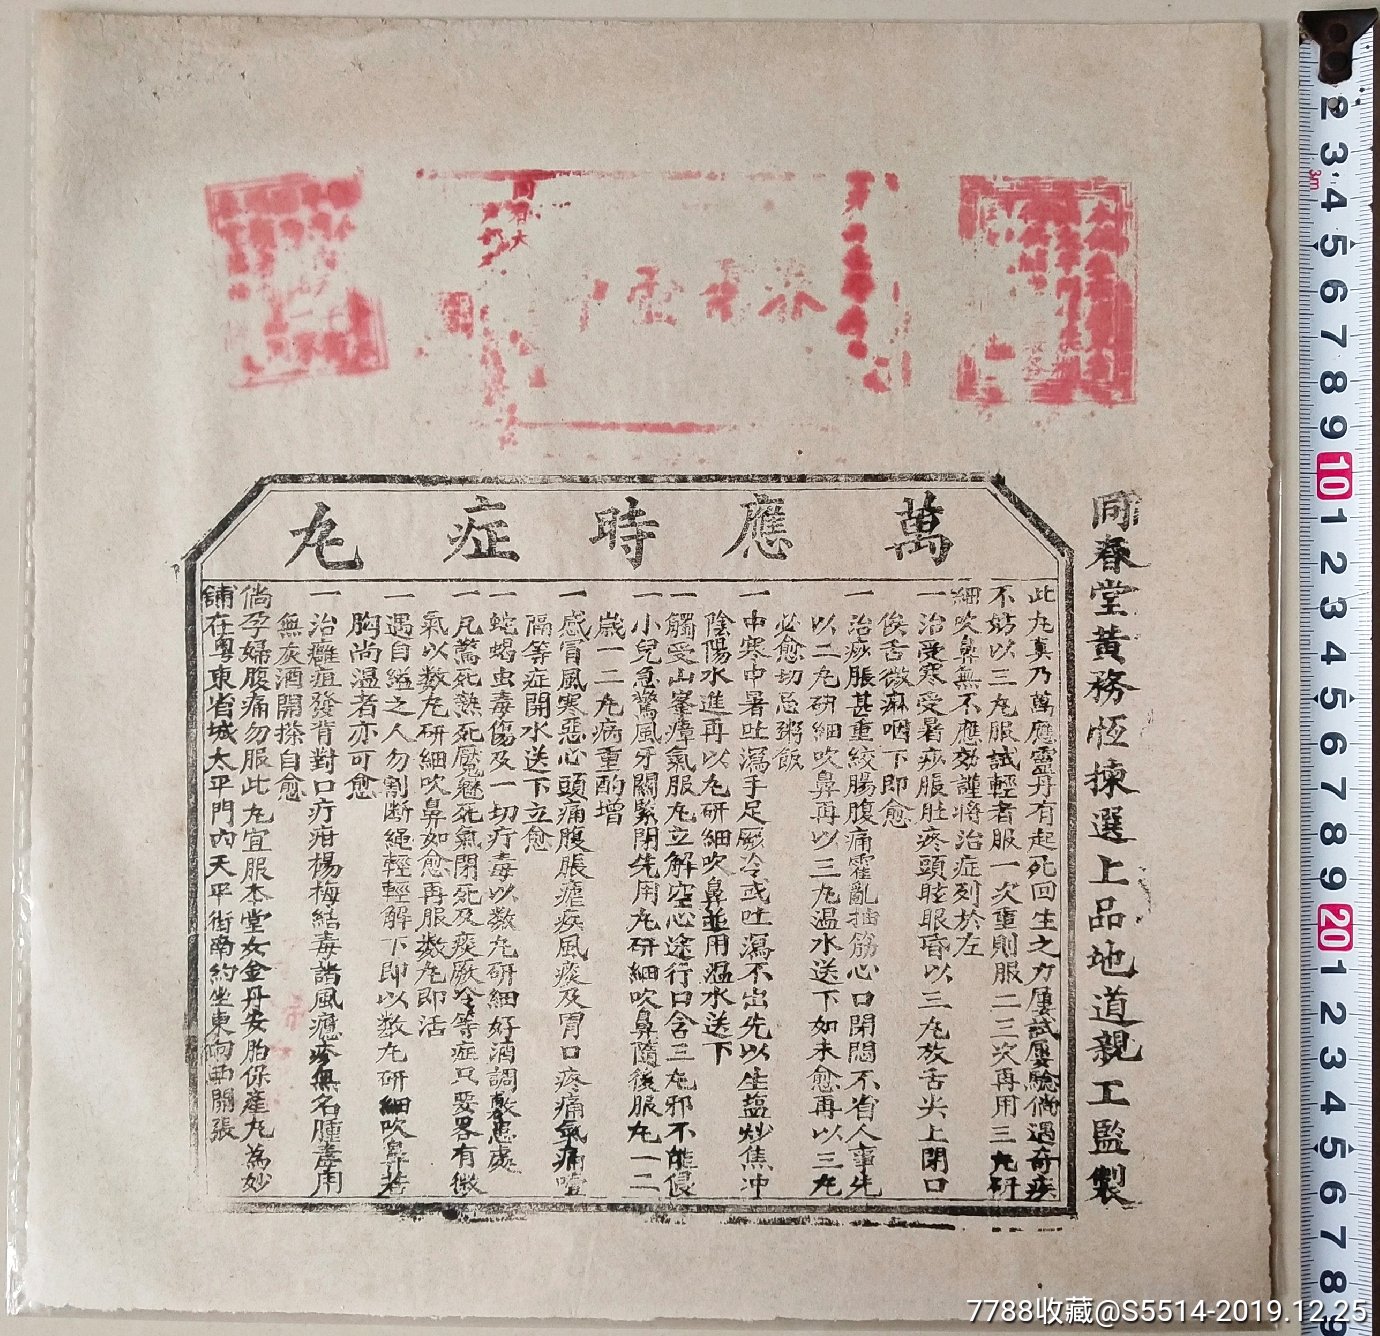 同春堂黃務恆揀選上品地道親工監製
萬應時症丸
此丸真乃萬應靈丹有起死回生之力屢試屢驗倘遇奇疾
不妨以三丸服試輕者服一次重則服二三次再用三丸研
細吹鼻無不應効謹將治症列於左
一治受寒受暑痧脹肚疼頭眩眼昏以三丸放舌尖上閉口
俟舌微麻咽下即愈
一治痧脹甚重絞腸腹痛霍亂抽筋心口閉悶不省人事先
以二丸研細吹鼻再以三丸温水送下如未愈再以三丸
必愈切忌粥飯
一中寒中暑吐瀉手足厥冷或吐瀉不出先以生塩炒焦冲
陰陽水進再以丸研細吹鼻並用温水送下
一觸受山嵐瘴氣服丸立解空心途行口含三丸邪不能侵
一小兒急驚風牙關緊閉先用丸研細吹鼻隨後服丸一二
歲一二丸病重酌增
一感冒風寒惡心頭痛腹脹瘧疾風痰及胃口疼痛氣痛噎
隔等症開水送下立愈
一蛇蝎虫毒傷及一切疔毒以数丸研細好酒調敷患處
一凡驚死熱死魘魅死氣閉死及痰厥冷等症只要畧有微
氣以数丸研細吹鼻如愈再服数丸即活
一遇自縊之人勿割断繩輕輕解下即以数丸研細吹鼻若
胸尚温者亦可愈
一治癰疽發背對口疔疳楊梅結毒諸風癮疹無名腫毒用
無灰酒開搽自愈
倘孕婦腹痛勿服此丸宜服本堂女金丹安胎保產丸為妙
舖在粤東省城太平門内天平街南約坐東向西開張
2 3 4 5 6 7 8 9 10 1 2 3 4 5 6 7 8 9 20 1 2 3 4 5 6 7 8 9
3m
7788收藏@S5514-2019.12.25